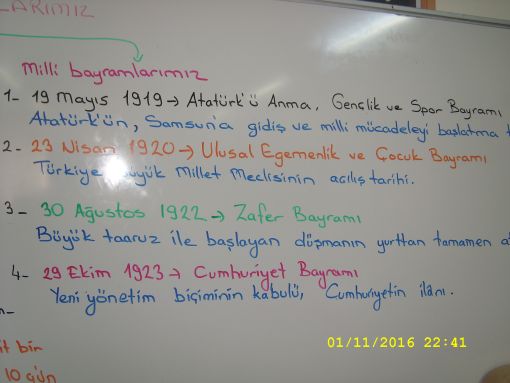 LARIMIZ
Milli bayramlarımız
1- 19 Mayıs 1919 → Atatürk'ü Anma, Gençlik ve Spor Bayramı
Atatürk'ün, Samsun'a gidiş ve milli mücadeleyi başlatma t
2- 23 Nisan 1920 → Ulusal Egemenlik ve Çocuk Bayramı
Türkiye Büyük Millet Meclisinin açılış tarihi.
3- 30 Ağustos 1922 → Zafer Bayramı
Büyük taaruz ile başlayan düşmanın yurttan tamamen at
4- 29 Ekim 1923 → Cumhuriyet Bayramı
Yeni yönetim biçiminin kabulü, Cumhuriyetin ilânı.
n-
it bir
10 gün
01/11/2016 22:41